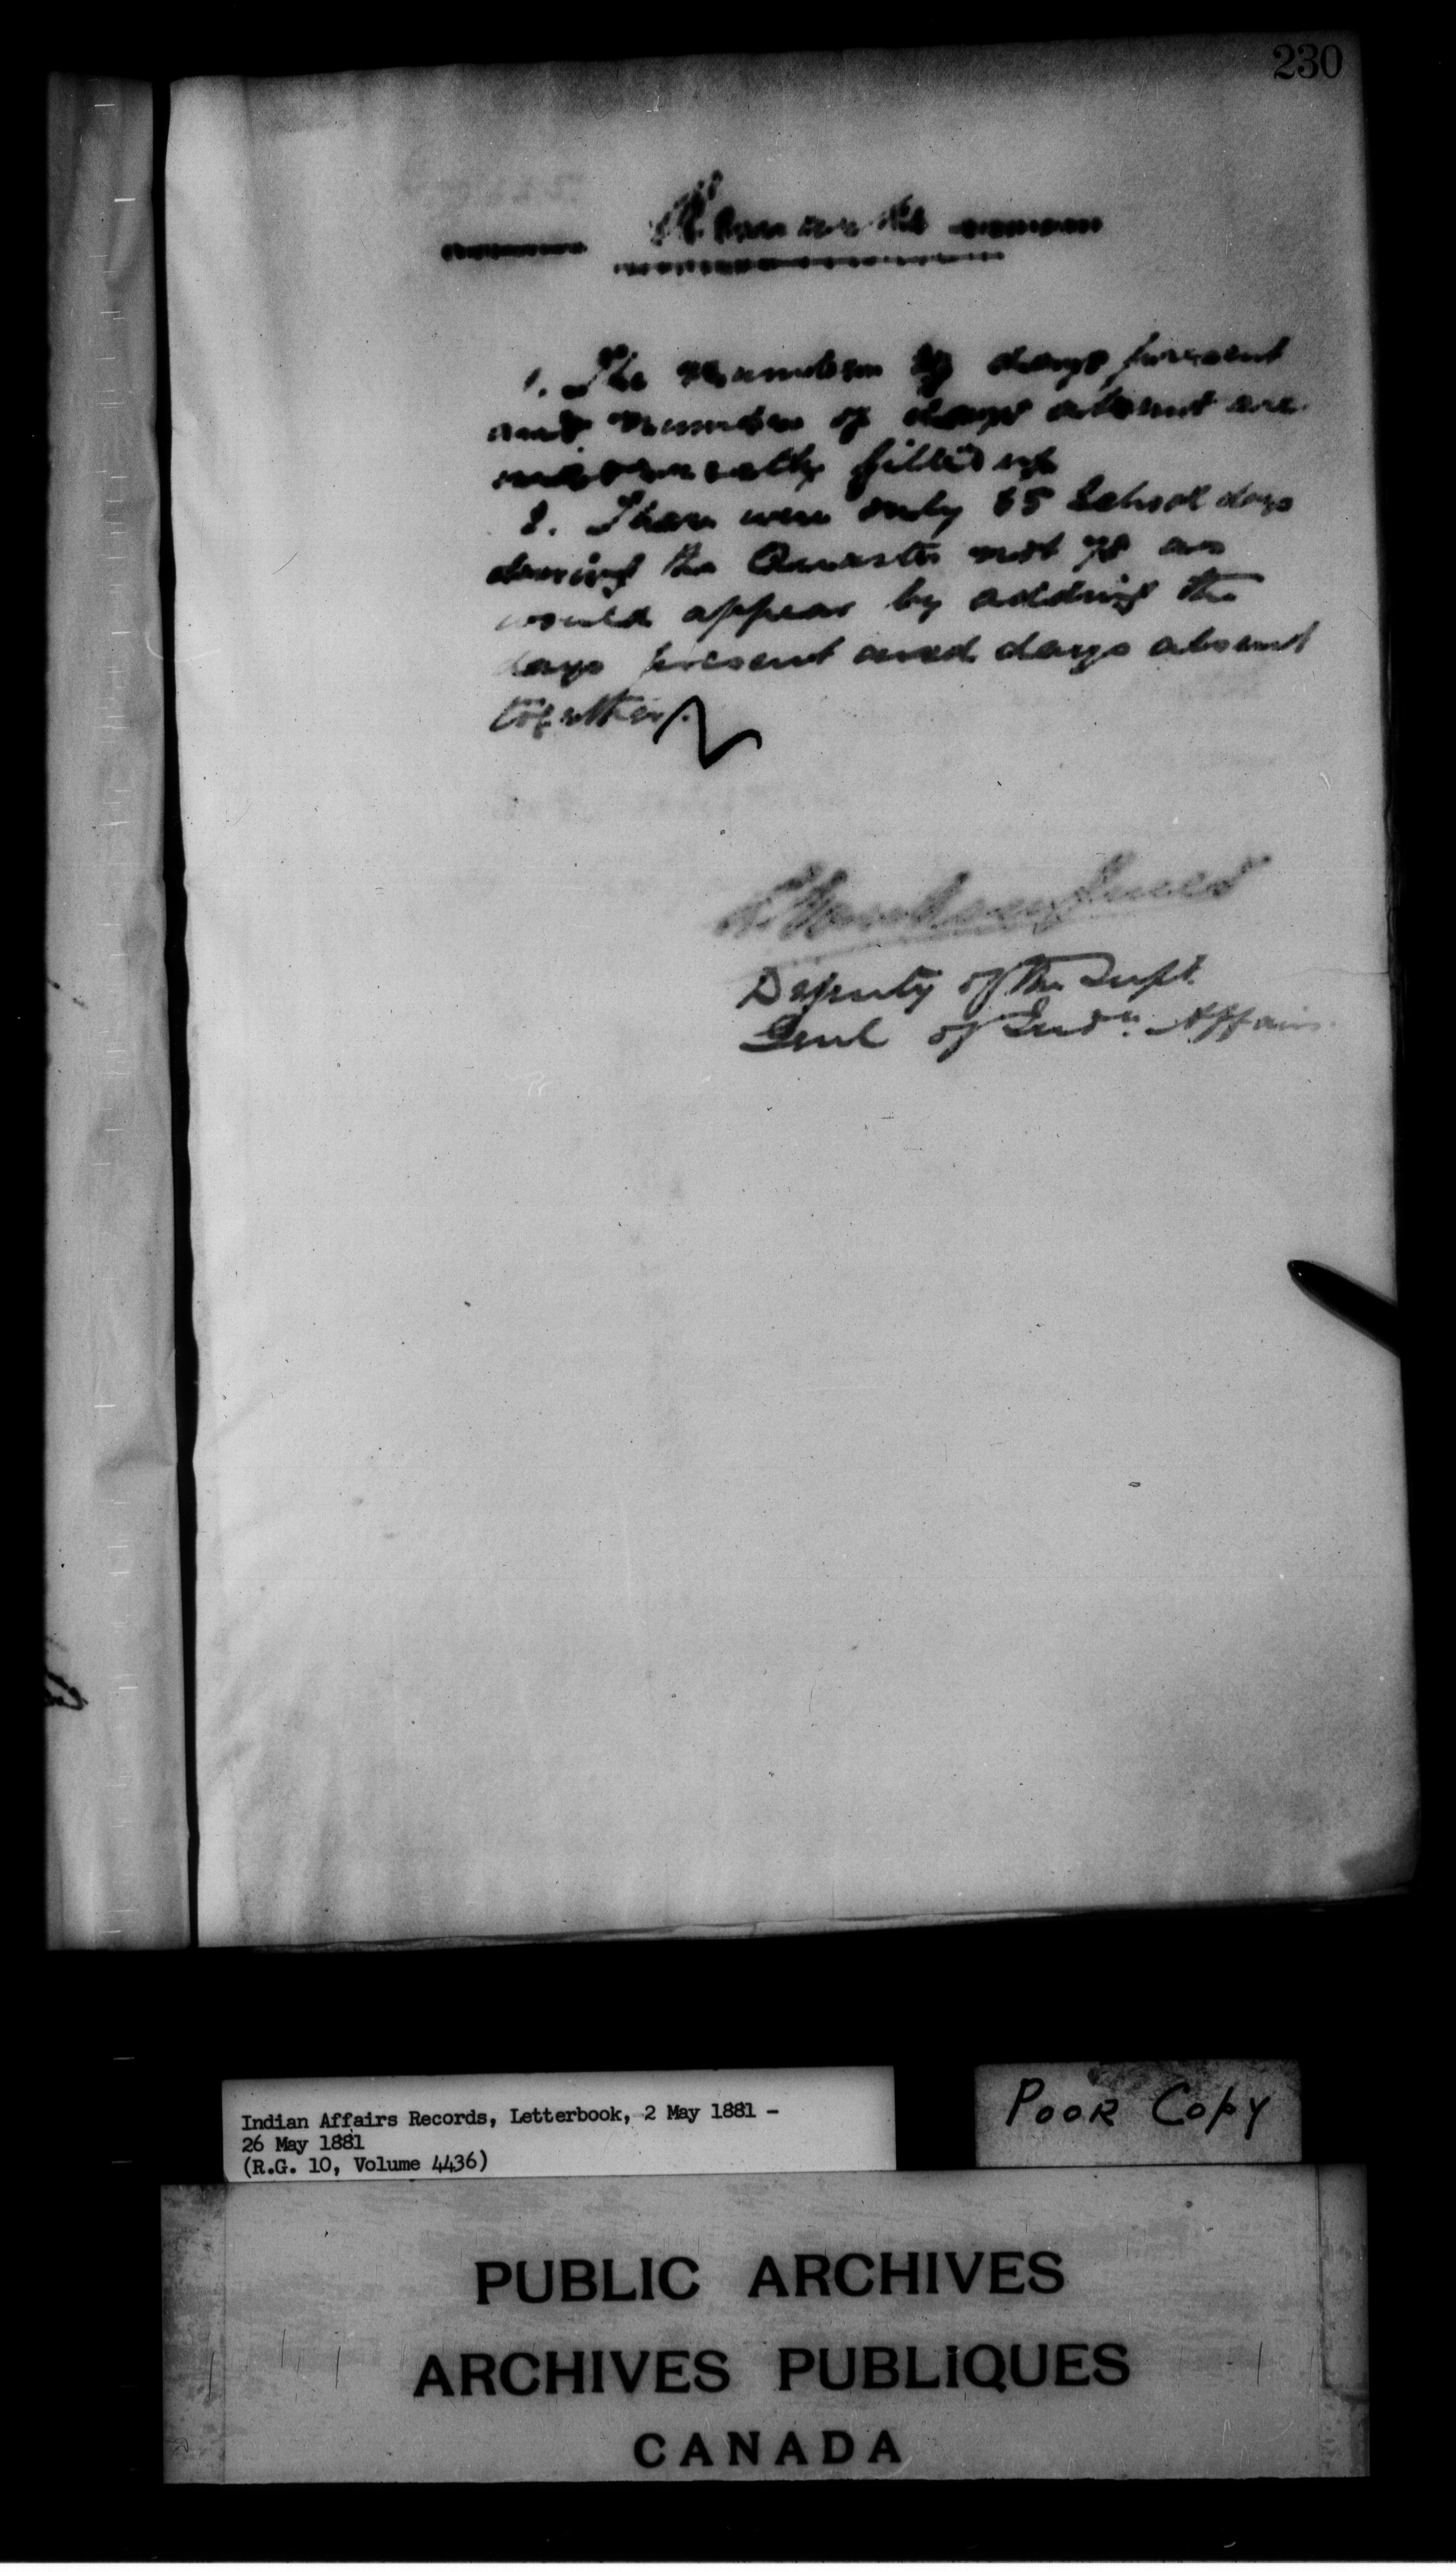 230
Remarks
1. The number of days present
and number of days absent are
incorrectly filled up
2. There were only 65 School days
during the Quarter not 78 as
would appear by adding the
days present and days absent
together.
L. Vankoughnet
Deputy of the Supt.
Genl of Indn. Affairs.
Indian Affairs Records, Letterbook, 2 May 1881 –
26 May 1881
(R.G. 10, Volume 4436)
Poor Copy
PUBLIC ARCHIVES
ARCHIVES PUBLIQUES
CANADA